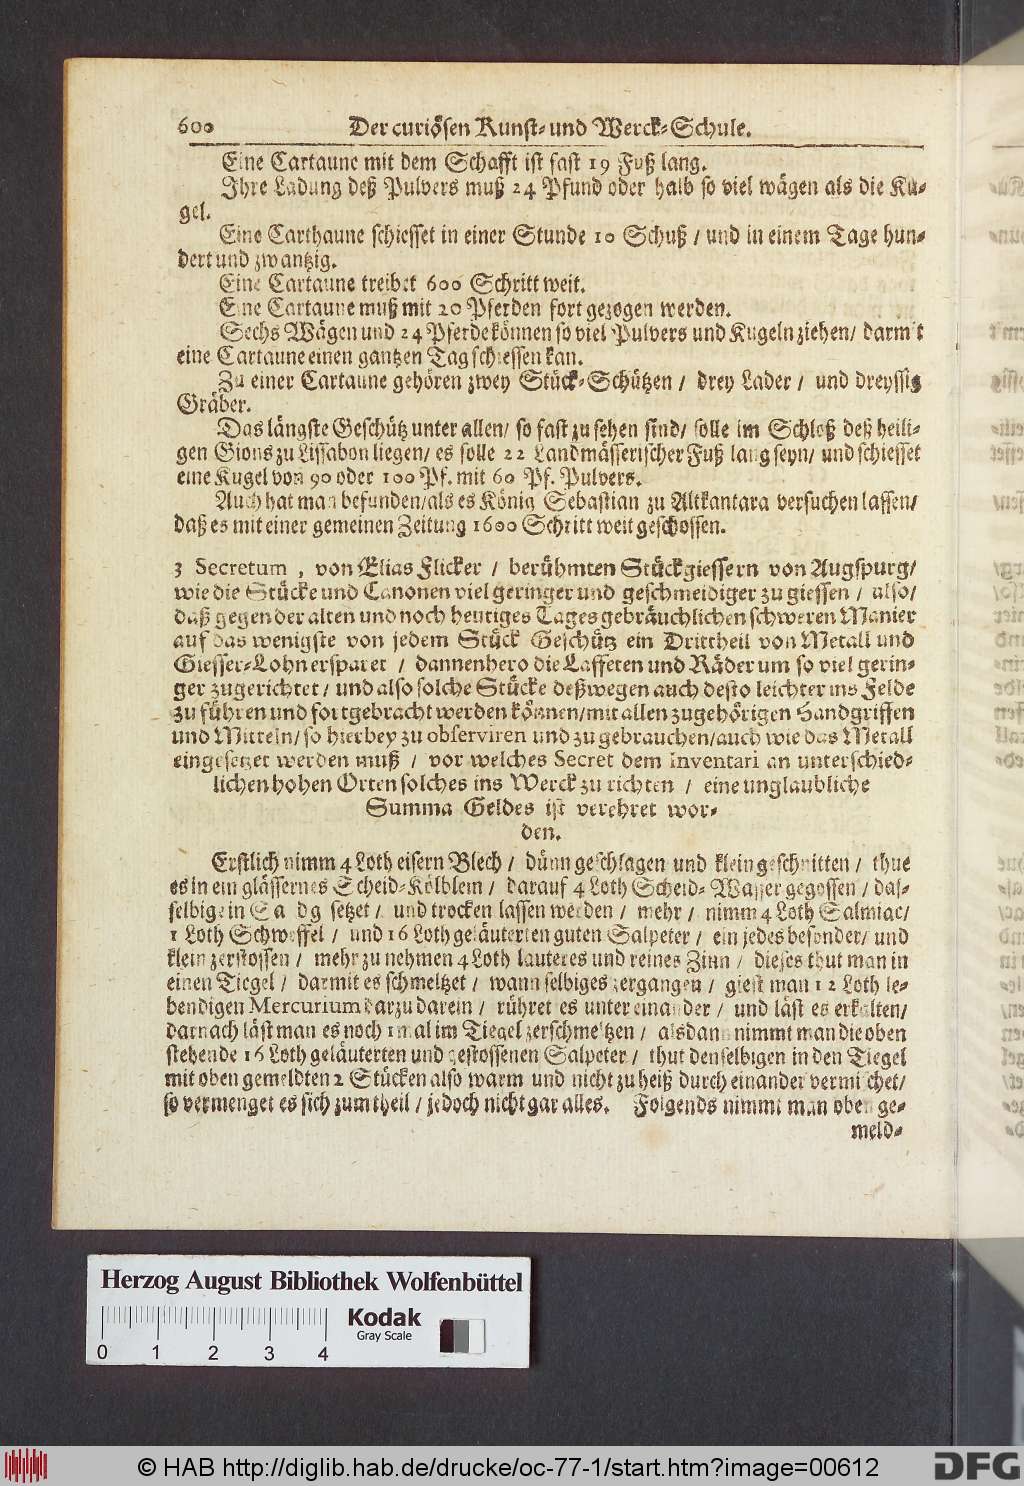 600 Der curiösen Kunst- und Werck-Schule.
Eine Cartaune mit dem Schafft ist fast 19 Fuß lang.
Ihre Ladung deß Pulvers muß 24 Pfund oder halb so viel wägen als die Ku-
gel.
Eine Carthaune schiesset in einer Stunde 10 Schuß / und in einem Tage hun-
dert und zwantzig.
Eine Cartaune treibet 600 Schritt weit.
Eine Cartaune muß mit 20 Pferden fort gezogen werden.
Sechs Wägen und 24 Pferde können so viel Pulvers und Kugeln ziehen / darmit
eine Cartaune einen gantzen Tag schiessen kan.
Zu einer Cartaune gehören zwey Stück-Schützen / drey Lader / und dreyssig
Gräber.
Das längste Geschütz unter allen / so fast zu sehen sind / solle im Schloß deß heili-
gen Gions zu Lissabon liegen / es solle 22 Landmässerischer Fuß lang seyn / und schiesset
eine Kugel von 90 oder 100 Pf. mit 60 Pf. Pulvers.
Auch hat man befunden / als es König Sebastian zu Altkantara versuchen lassen /
daß es mit einer gemeinen Zeitung 1600 Schritt weit geschossen.
3 Secretum, von Elias Flicker / berühmten Stückgiessern von Augspurg /
wie die Stücke und Canonen viel geringer und geschmeidiger zu giessen / also /
daß gegen der alten und noch heutiges Tages gebräuchlichen schweren Manier
auf das wenigste von jedem Stück Geschütz ein Drittheil von Metall und
Giesser-Lohn ersparet / dannenhero die Laffeten und Räder um so viel gerin-
ger zugerichtet / und also solche Stücke deßwegen auch desto leichter ins Felde
zu führen und fortgebracht werden können / mit allen zugehörigen Handgriffen
und Mitteln / so hierbey zu observiren und zu gebrauchen / auch wie das Metall
eingesetzet werden muß / vor welches Secret dem Inventari an unterschied-
lichen hohen Orten solches ins Werck zu richten / eine unglaubliche
Summa Geldes ist verehret wor-
den.
Erstlich nimm 4 Loth eisern Blech / dünn geschlagen und klein geschnitten / thue
es in ein glässernes Scheid-Kölblein / darauf 4 Loth Scheid-Wasser gegossen / das-
selbige in setzet / und trocken lassen werden / mehr / nimm 4 Loth Salmiac /
1 Loth Schweffel / und 16 Loth geläuterten guten Salpeter / ein jedes besonder / und
klein zerstossen / mehr zu nehmen 4 Loth lauteres und reines Zinn / dieses thut man in
einen Tiegel / darmit es schmeltzet / wann selbiges zergangen / giest man 12 Loth le-
bendigen Mercurium darzu darein / rühret es unter einander / und läst es erkalten /
darnach läst man es noch 1 mal im Tiegel zerschmeltzen / alsdann nimmt man die oben
stehende 16 Loth geläuterten und gestossenen Salpeter / thut denselbigen in den Tiegel
mit oben gemeldten 2 Stücken also warm und nicht zu heiß durch einander vermischet /
so vermenget es sich zum theil / jedoch nicht gar alles. Folgends nimmt man oben ge-
meld-
Herzog August Bibliothek Wolfenbüttel
Kodak
Gray Scale
0 1 2 3 4
© HAB http://diglib.hab.de/drucke/oc-77-1/start.htm?image=00612
DFG